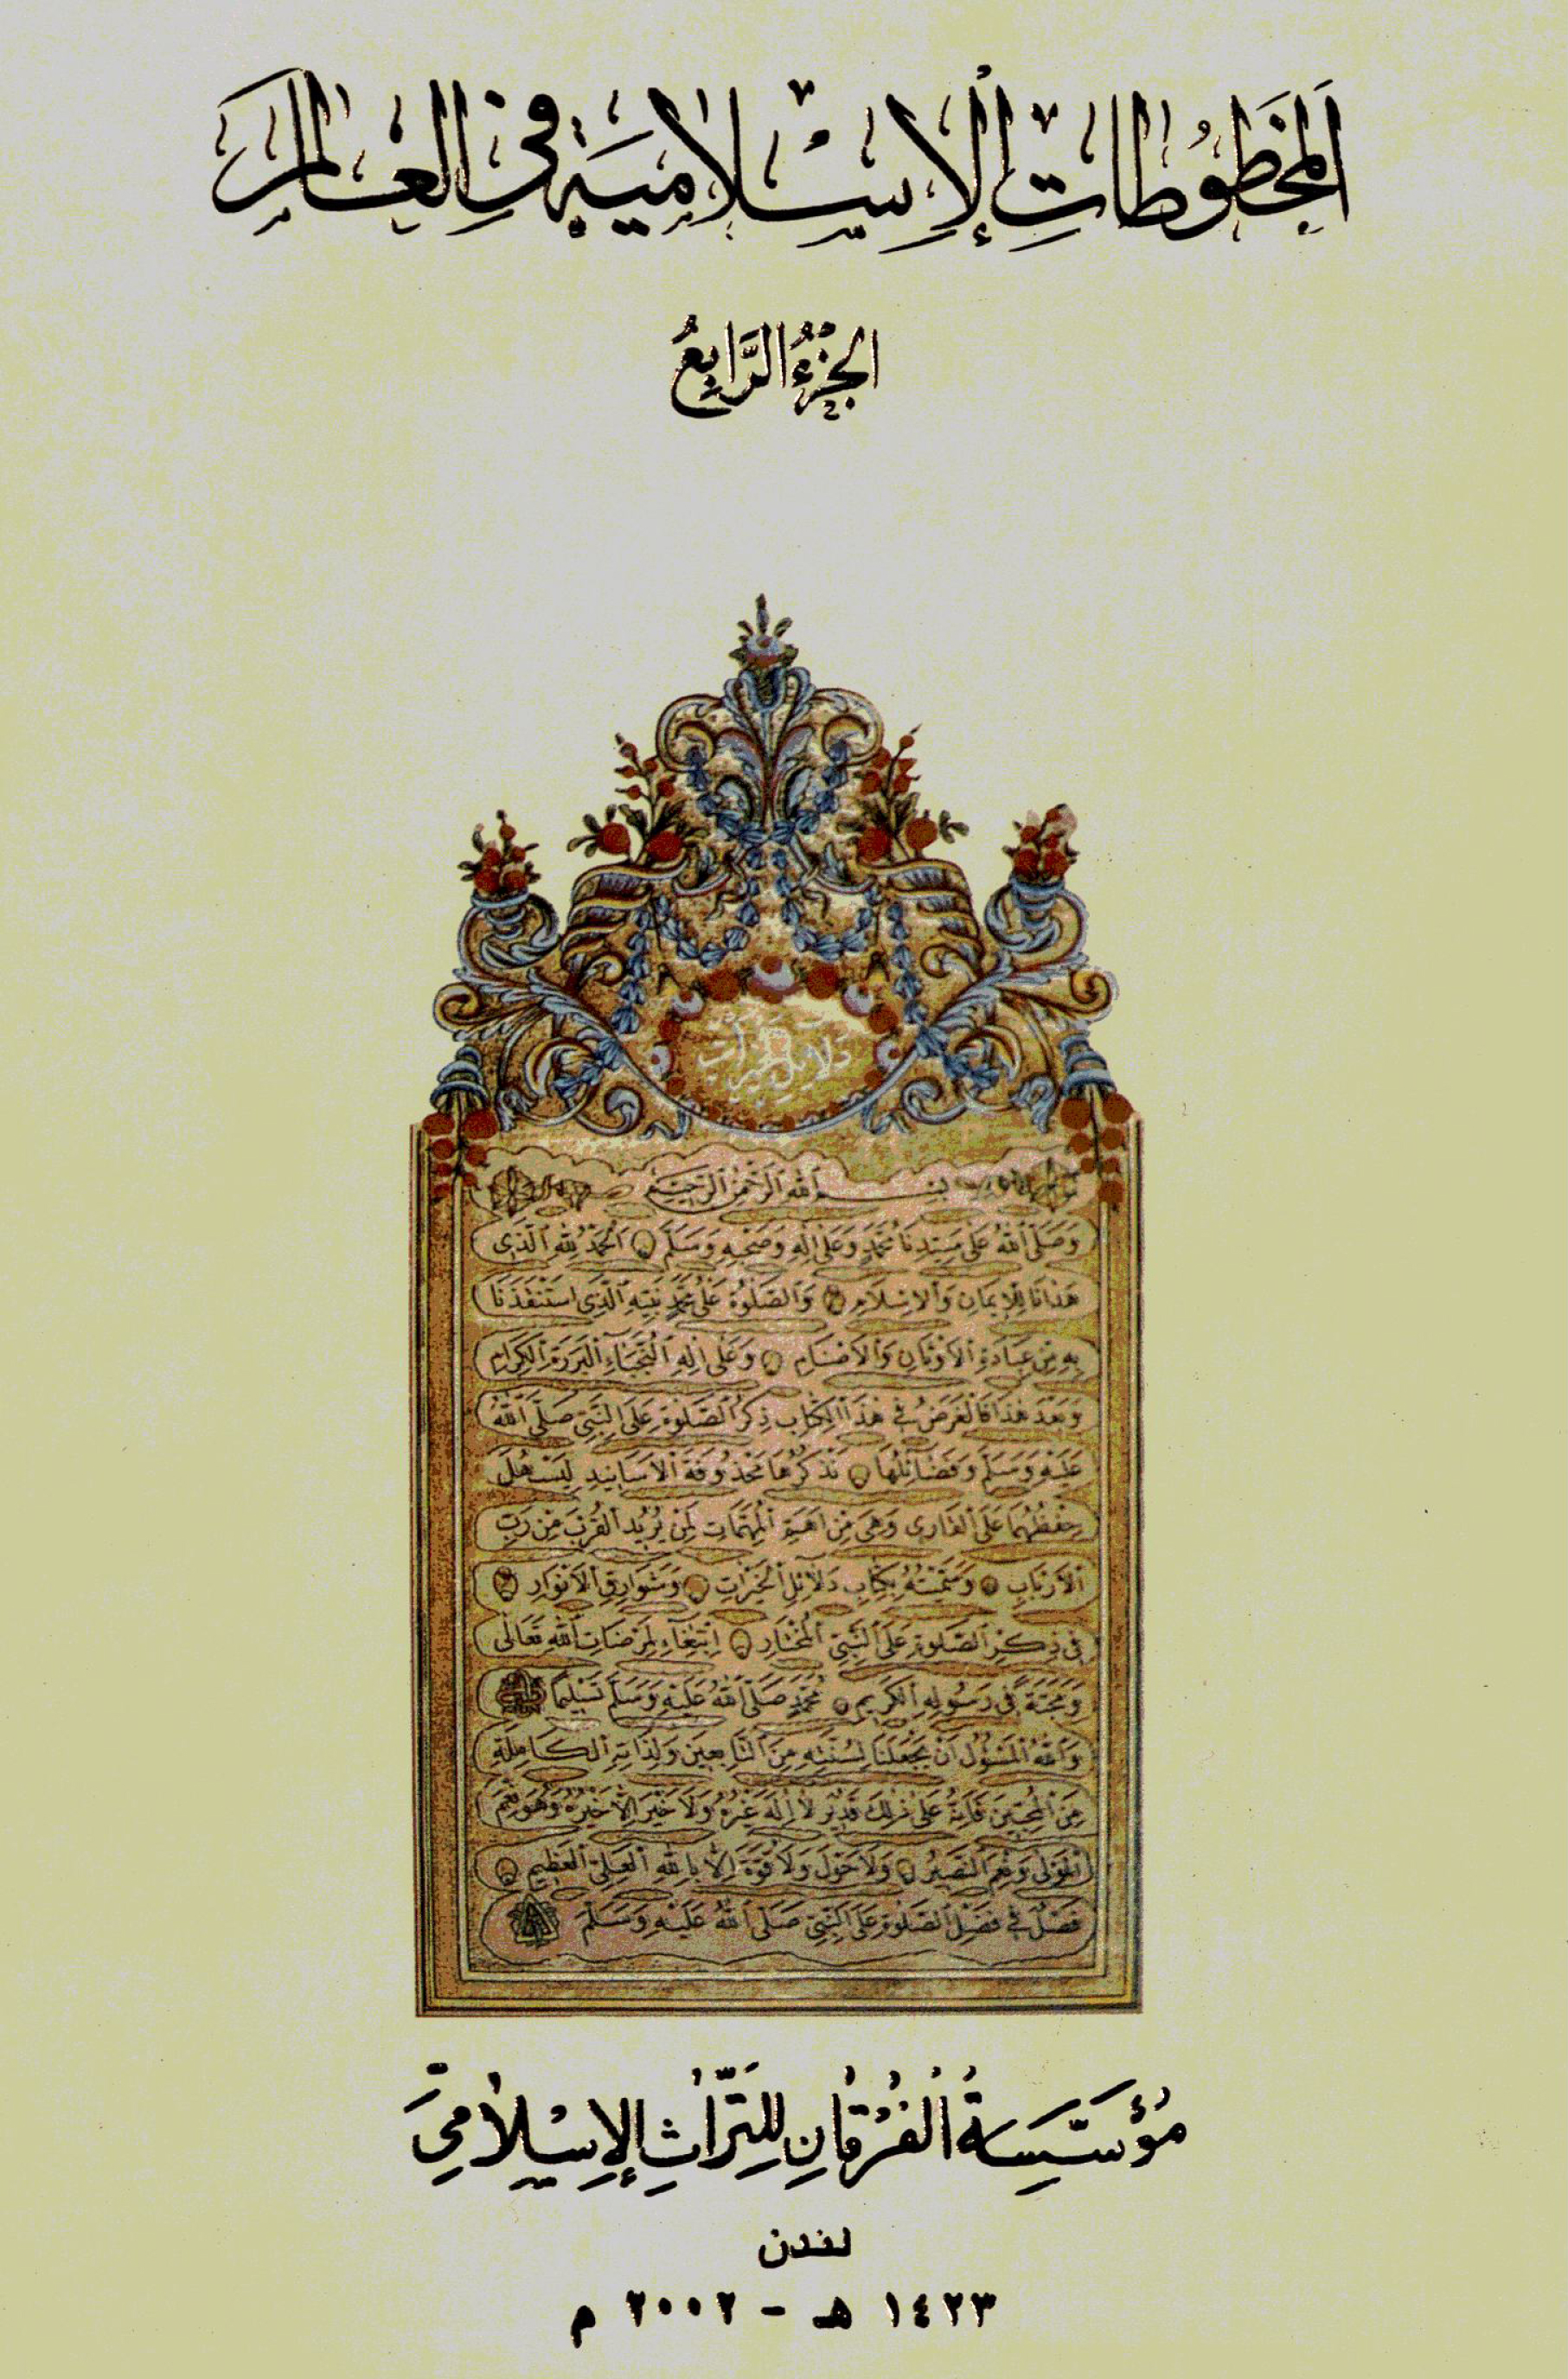 المخطوطات الإسلامية في العالم
الجزء الرابع
دلائل الخيرات
بسم الله الرحمن الرحيم
وصلى الله على سيدنا محمد وعلى اله وصحبه وسلم الحمد لله الذي
هدانا للإيمان والاسلام والصلوة على محمد نبيه الذي استنقذنا
به من عبادة الاوثان والاصنام وعلى اله النجباء البررة الكرام
وبعد هذا فالغرض في هذا الكتاب ذكر الصلوة على النبي صلى الله
عليه وسلم وفضائلها نذكرها محذوفة الاسانيد ليسهل
حفظها على القارى وهي من اهم المهمات لمن يريد القرب من رب
الارباب وسميته بكتاب دلائل الخيرات وشوارق الانوار
في ذكر الصلوة على النبي المختار ابتغاء لمرضات الله تعالى
ومحبة في رسوله الكريم محمد صلى الله عليه وسلم تسليما
والله المسؤل ان يجعلنا لسنته من التابعين ولذاته الكاملة
من المحبين فانه على ذلك قدير لا اله غيره ولا خير الا خيره وهو نعم
المولى ونعم النصير ولا حول ولا قوة الا بالله العلي العظيم
فصل في فضل الصلوة على النبي صلى الله عليه وسلم
مؤسسة الفرقان للتراث الإسلامي
لندن
١٤٢٣ هـ - ٢٠٠٢ م